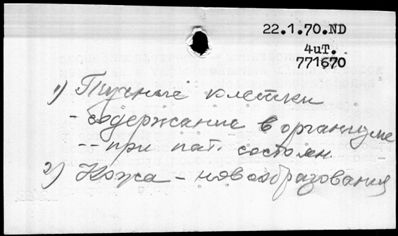 22.1.70.ND
4иТ.
771670
1) Тучные клетки
- содержание в организме
-- при пат. состоян.
2) Кожа - новообразования